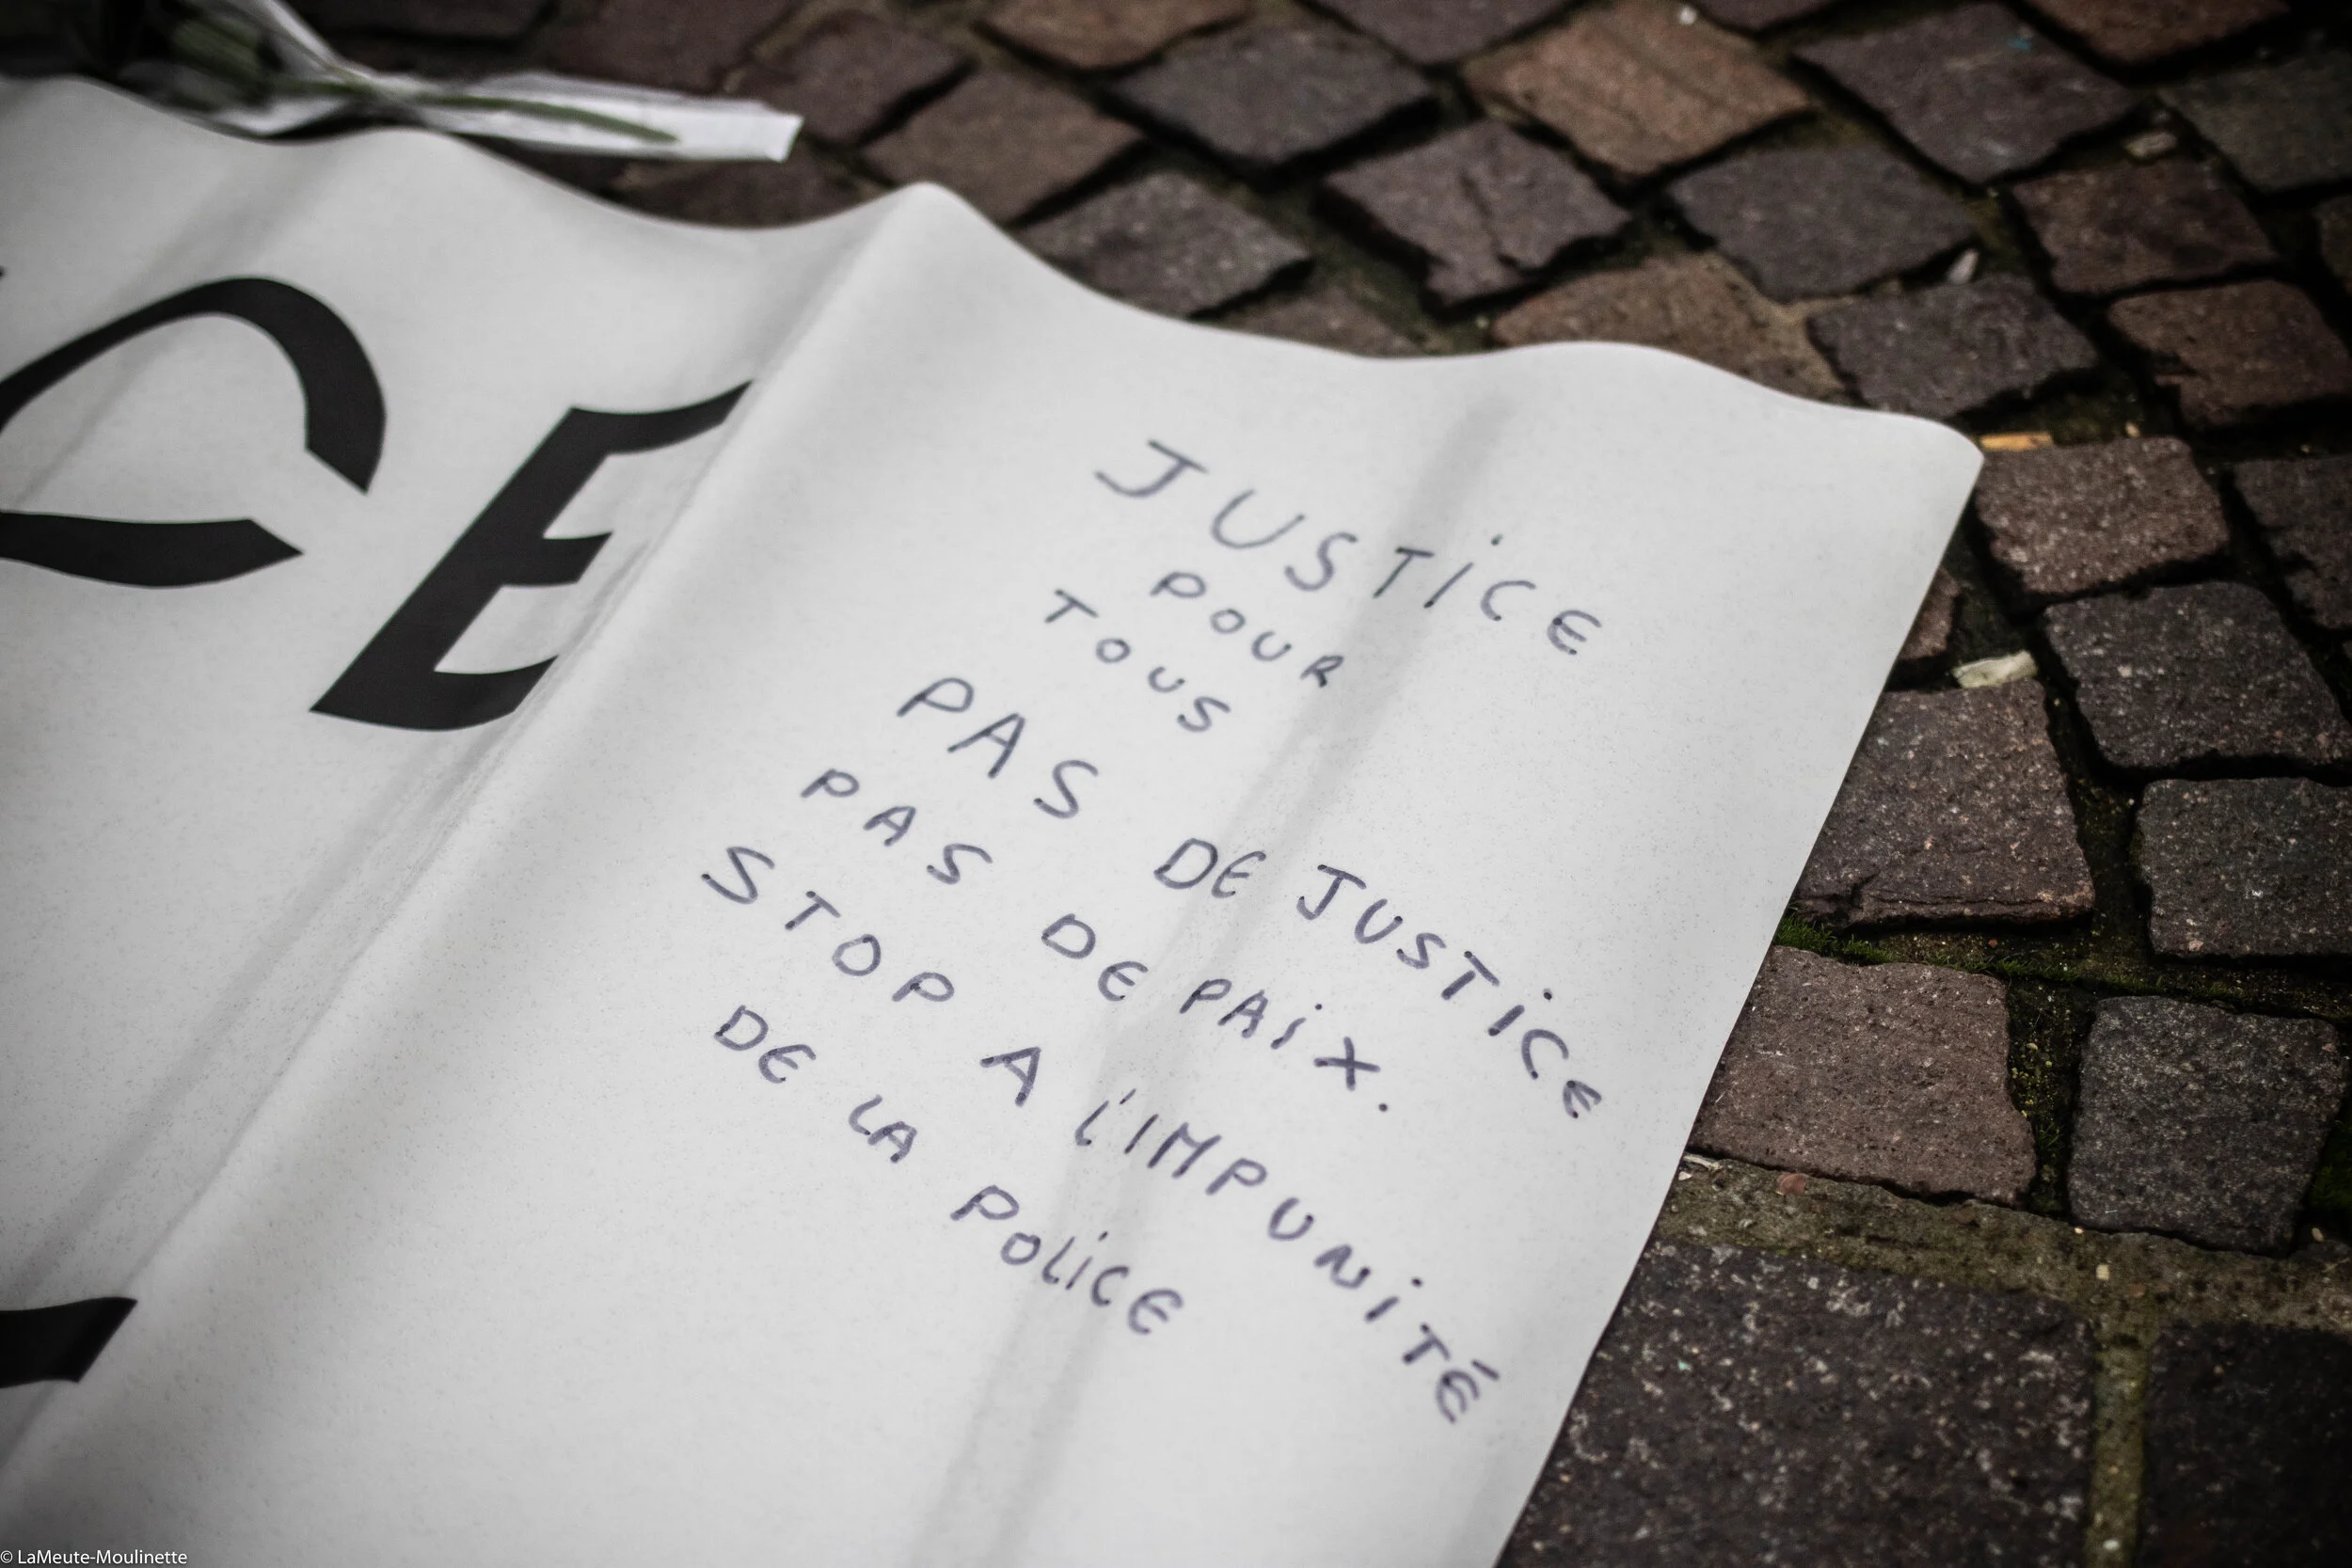 CE
JUSTiCE
POUR
TOUS
PAS DE JUSTiCE
PAS DE PAiX.
STOP A L'IMPUNiTÉ
DE LA POLiCE
© LaMeute-Moulinette